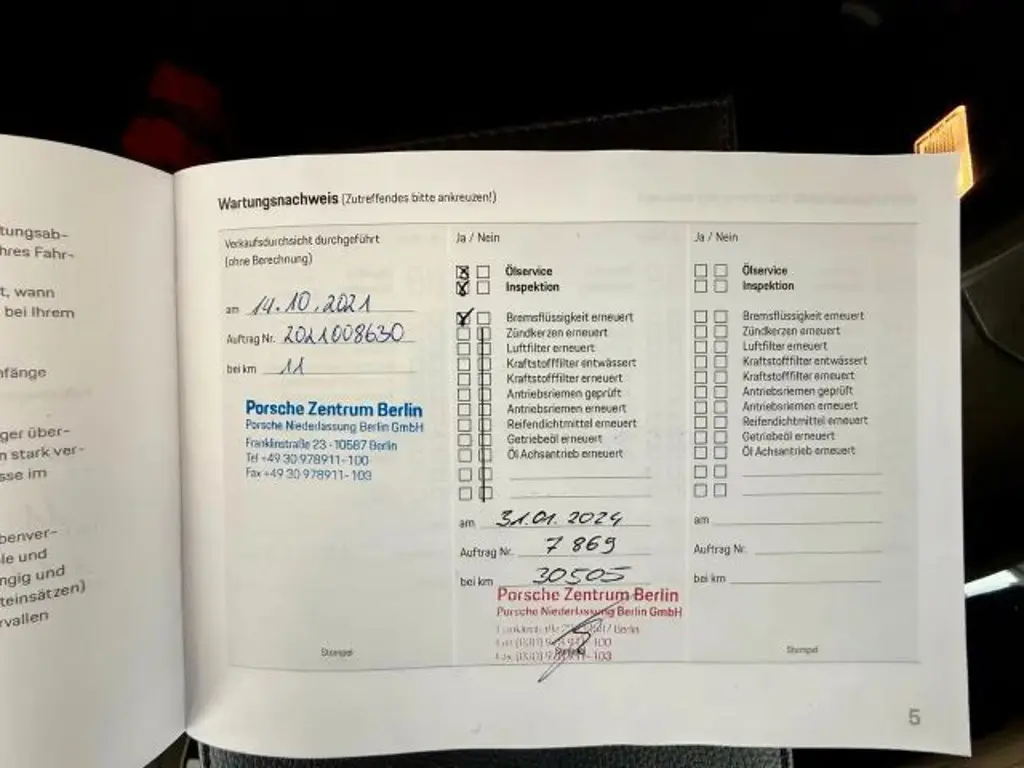 tungsab-
hres Fahr-
t, wann
bei Ihrem
nfänge
ger über-
n stark ver-
sse im
benver-
le und
ngig und
teinsätzen)
rvallen
Wartungsnachweis (Zutreffendes bitte ankreuzen!)
Verkaufsdurchsicht durchgeführt
(ohne Berechnung)
am 14.10.2021
Auftrag Nr. 2021008630
bei km 11
Porsche Zentrum Berlin
Porsche Niederlassung Berlin GmbH
Franklinstraße 23 · 10587 Berlin
Tel +49 30 978911-100
Fax +49 30 978911-103
Stempel
Ja / Nein
Ölservice
Inspektion
Bremsflüssigkeit erneuert
Zündkerzen erneuert
Luftfilter erneuert
Kraftstofffilter entwässert
Kraftstofffilter erneuert
Antriebsriemen geprüft
Antriebsriemen erneuert
Reifendichtmittel erneuert
Getriebeöl erneuert
Öl Achsantrieb erneuert
am 31.01.2024
Auftrag Nr. 7869
bei km 30505
Porsche Zentrum Berlin
Porsche Niederlassung Berlin GmbH
Ja / Nein
Ölservice
Inspektion
Bremsflüssigkeit erneuert
Zündkerzen erneuert
Luftfilter erneuert
Kraftstofffilter entwässert
Kraftstofffilter erneuert
Antriebsriemen geprüft
Antriebsriemen erneuert
Reifendichtmittel erneuert
Getriebeöl erneuert
Öl Achsantrieb erneuert
am
Auftrag Nr.
bei km
Stempel
5